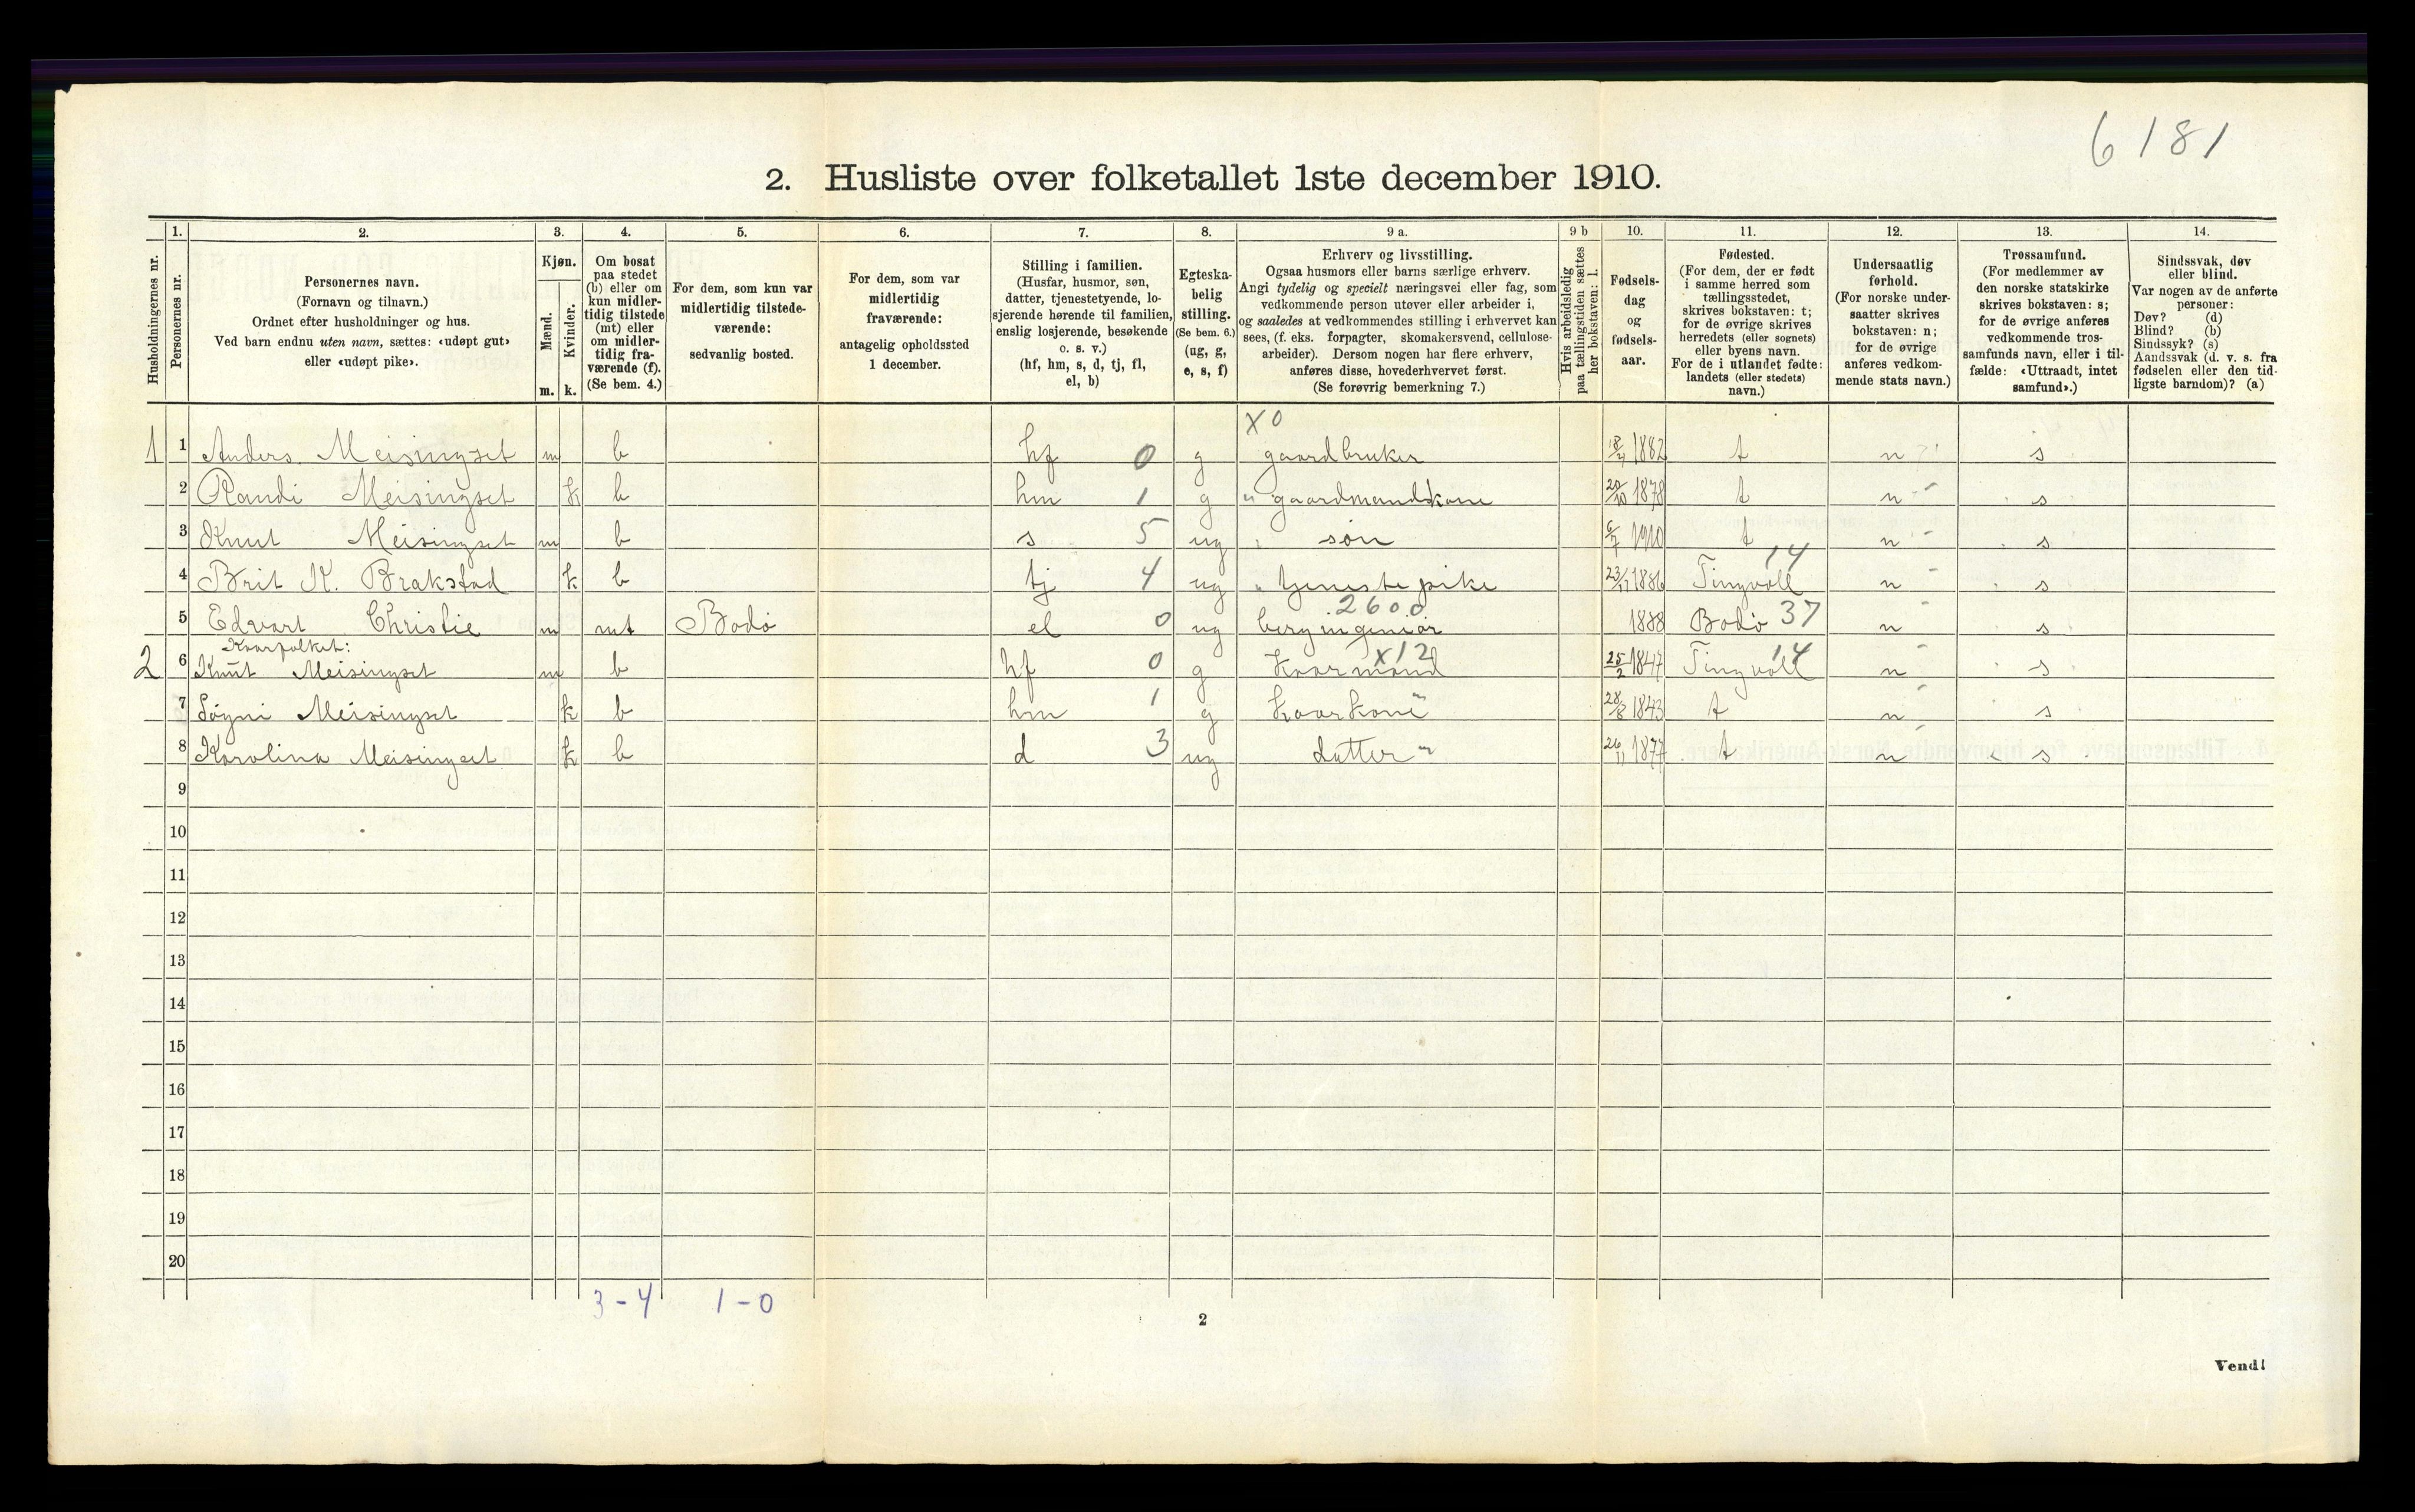 6181
2. Husliste over folketallet 1ste december 1910.
Husholdningernes nr.
1.
Personernes nr.
2.
Personernes navn.
(Fornavn og tilnavn.)
Ordnet efter husholdninger og hus.
Ved barn endnu uten navn, sættes: «udøpt gut»
eller «udøpt pike».
3.
Kjøn.
Mænd.
Kvinder.
m. k.
4.
Om bosat
paa stedet
(b) eller om
kun midler-
tidig tilstede
(mt) eller
om midler-
tidig fra-
værende (f).
(Se bem. 4.)
5.
For dem, som kun var
midlertidig tilstede-
værende:
sedvanlig bosted.
6.
For dem, som var
midlertidig
fraværende:
antagelig opholdssted
1 december.
7.
Stilling i familien.
(Husfar, husmor, søn,
datter, tjenestetyende, lo-
sjerende hørende til familien,
enslig losjerende, besøkende
o. s. v.)
(hf, hm, s, d, tj, fl,
el, b)
8.
Egteska-
belig
stilling.
(Se bem. 6.)
(ug, g,
e, s, f)
9 a.
Erhverv og livsstilling.
Ogsaa husmors eller barns særlige erhverv.
Angi tydelig og specielt næringsvei eller fag, som
vedkommende person utøver eller arbeider i,
og saaledes at vedkommendes stilling i erhvervet kan
sees, (f. eks. forpagter, skomakersvend, cellulose-
arbeider). Dersom nogen har flere erhverv,
anføres disse, hovederhvervet først.
(Se forøvrig bemerkning 7.)
9 b
Hvis arbeidsledig
paa tællingstiden sættes
her bokstaven: l.
10.
Fødsels-
dag
og
fødsels-
aar.
11.
Fødested.
(For dem, der er født
i samme herred som
tællingsstedet,
skrives bokstaven: t;
for de øvrige skrives
herredets (eller sognets)
eller byens navn.
For de i utlandet fødte:
landets (eller stedets)
navn.)
12.
Undersaatlig
forhold.
(For norske under-
saatter skrives
bokstaven: n;
for de øvrige
anføres vedkom-
mende stats navn.)
13.
Trossamfund.
(For medlemmer av
den norske statskirke
skrives bokstaven: s;
for de øvrige anføres
vedkommende tros-
samfunds navn, eller i til-
fælde: «Uttraadt, intet
samfund».)
14.
Sindssvak, døv
eller blind.
Var nogen av de anførte
personer:
Døv? (d)
Blind? (b)
Sindssyk? (s)
Aandssvak (d. v. s. fra
fødselen eller den tid-
ligste barndom)? (a)
X 0
1 1 Anders Meisingset m b hf 0 g gaardbruker 18/4 1882 t n s
2 Randi Meisingset k b hm 1 g " gaardmandskone 20/10 1878 t n s
3 Knut Meisingset m b s 5 ug " søn 6/7 1910 t n s
14
4 Brit K. Brakstad k b tj 4 ug " tjenestepike 23/11 1886 Tingvoll n s
2600
5 Edvart Christie m mt Bodø el 0 ug bergingeniør 1888 Bodø 37 n s
Kaarfolket:
X12 14
2 6 Knut Meisingset m b hf 0 g Kaarmand 25/2 1847 Tingvoll n s
7 Søgni Meisingset k b hm 1 g Kaarkone " 28/8 1843 t n s
8 Karolina Meisingset k b d 3 ug datter " 26/11 1877 t n s
9
10
11
12
13
14
15
16
17
18
19
20
3 - 4 1 - 0
2
Vend!